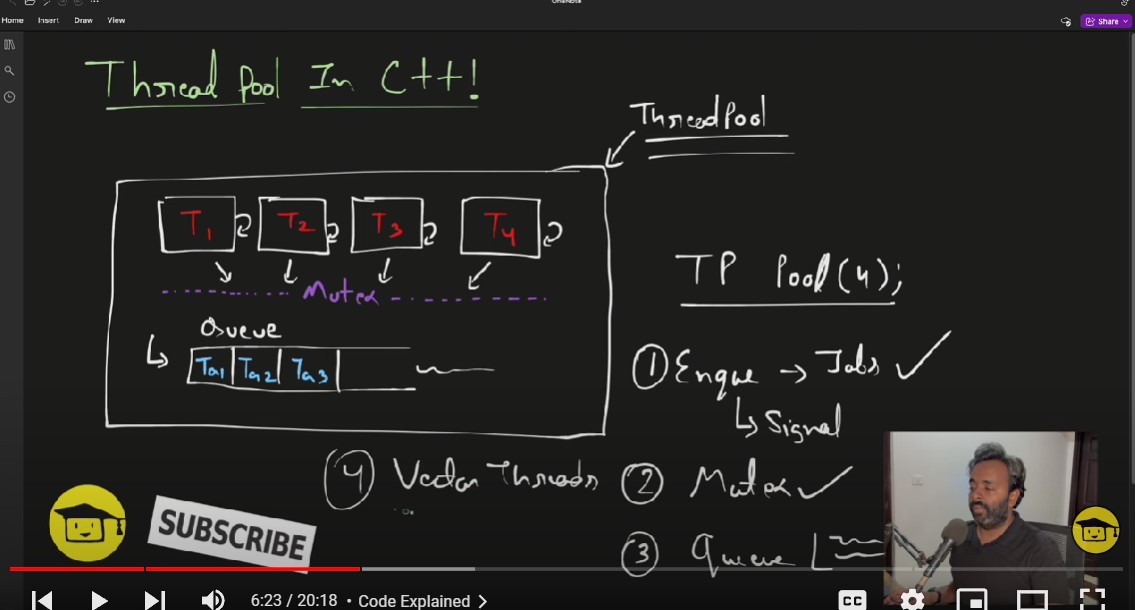 OneNote
Home Insert Draw View
Share
Thread Pool In C++!
ThreadPool
T1 T2 T3 T4
Mutex
TP Pool(4);
Queue
Ta1 Ta2 Ta3
① Enque → Jobs ✓
↳ Signal
④ Vector Threads
② Mutex ✓
③ Queue
SUBSCRIBE
6:23 / 20:18 • Code Explained
CC